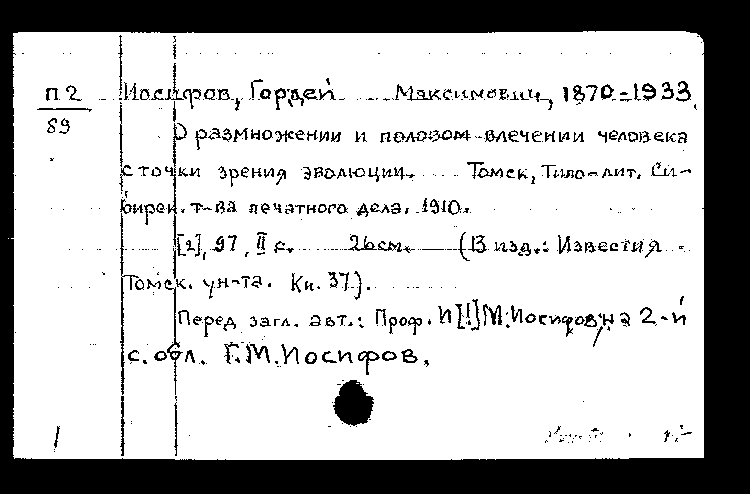 П2 Иосифов, Гордей Максимович, 1870-1933.
89
О размножении и половом влечении человека
с точки зрения эволюции. Томск, Типо-лит. Си-
бирск. т-ва печатного дела. 1910.
[2], 97, II с. 26 см. (В изд.: Известия
Томск. ун-та. Кн. 37).
Перед загл. авт.: Проф. И[!]М.Иосифов, на 2-й
с. обл. Г.М.Иосифов.